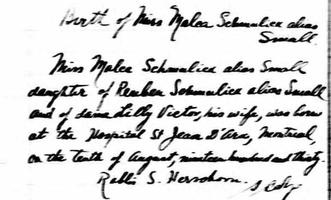 Birth of Miss Malca Schmulick alias
Small.
Miss Malca Schmulick alias Small
daughter of Reuben Schmulick alias Small
and of dame Lilly Victor, his wife, was born
at the Hospital St Jean D'Arc, Montreal,
on the tenth of August, nineteen hundred and thirty
Rabbi S. Herschorn.